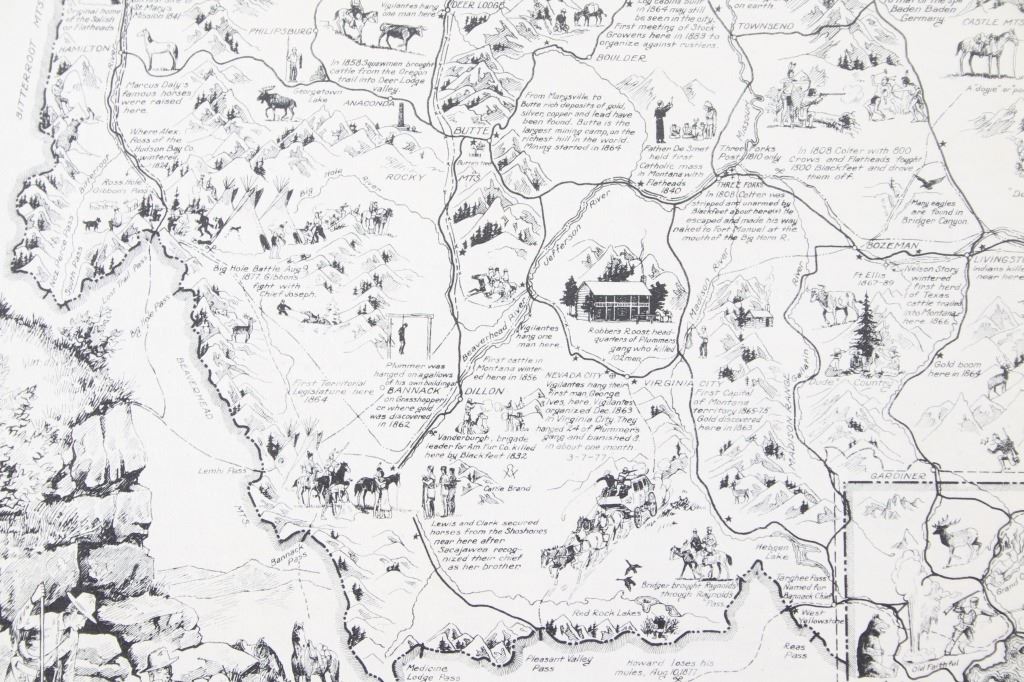 Original home
of the Salish
or Flatheads
Mission 1841
HAMILTON
BITTERROOT
MTS.
PHILIPSBURG
Vigilantes hang
one man here
DEER LODGE
Log cabins built
in 1864 may still
be seen in the city.
First meeting of Stock
Growers here in 1883 to
organize against rustlers.
BOULDER
on earth.
TOWNSEND
Baden Baden
Germany
CASTLE MTS.
A "dogie" or
In 1858 Squawmen brought
cattle from the Oregon
trail into Deer Lodge
valley.
Marcus Daly's
famous horses
were raised
here.
Georgetown
Lake
ANACONDA
BUTTE
Where Alex
Ross of the
Hudson Bay Co.
wintered,
1824
Ross Hole
Gibbon's Pass
Big Hole River
ROCKY
MTS.
From Marysville to
Butte rich deposits of gold,
silver, copper and lead have
been found. Butte is the
largest mining camp, on the
richest hill in the world.
Mining started in 1864
Father De Smet
held first
Catholic mass
in Montana with
Flatheads
1840
Three Forks
Post 1810 only
In 1808 Colter with 800
Crows and Flatheads fought
1500 Blackfeet and drove
them off.
THREE FORKS
In 1808 Colter was
stripped and unarmed by
Blackfeet about here. He
escaped and made his way
naked to Fort Manuel at the
mouth of the Big Horn R.
Many eagles
are found in
Bridger Canyon.
BOZEMAN
LIVINGSTON
Indians killed
near here
Lost Trail Pass
Big Hole Pass
Big Hole Battle Aug 9,
1877. Gibbon's
fight with
Chief Joseph.
Jefferson River
Robbers Roost, head-
quarters of Plummers
gang who killed
102 men.
Ft Ellis
1867-89
Nelson Story
wintered
first herd
of Texas
cattle trailed
into Montana
here, 1866
Gold boom
here in 1864
BEAVERHEAD
MTS.
Beaverhead
Vigilantes
hang one
man here.
Plummer was
hanged on a gallows
of his own building
BANNACK
on Grasshopper
cr where gold
was discovered
in 1862
First Territorial
Legislature here
1864
First cattle in
Montana winter-
ed here in 1856
DILLON
NEVADA CITY
Vigilantes hang their
first man George
Ives, here. Vigilantes
organized Dec. 1863
in Virginia City. They
hanged 24 of Plummers
gang and banished 8
in about one month
3-7-77
VIRGINIA CITY
First Capital
of Montana
territory 1865-75
Gold discovered
here in 1863
Vanderburgh, brigade
leader for Am Fur Co. killed
here by Blackfeet 1832
Carrie Brand
Lemhi Pass
GARDINER
Lewis and Clark secured
horses from the Shoshones
near here after
Sacajawea recog-
nized their chief
as her brother.
Bannack
Pass
Hebgen
Lake
Bridger brought Raynolds
through Raynolds
Pass.
Targhee Pass
Named for
Bannack Chief
Red Rock Lakes
West
Yellowstone
Reas
Pass
Old Faithful
Medicine
Lodge Pass
Pleasant Valley
Pass
Howard loses his
mules, Aug 10, 1877